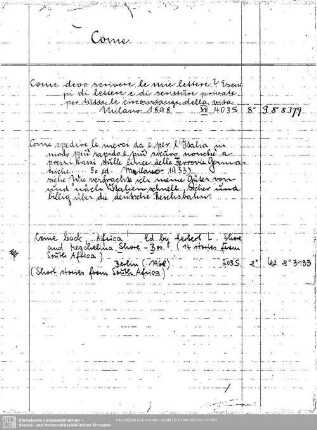 Come
Come devo scrivere le mie lettere? Esem
pi di lettere e di scritture private
per tutte le circostanze della vita
Milano 1898. VII, 403 S. 8° 3 8° 8379
Come spedire le merci da e per l'Italia in
modo più rapido, più sicuro nonchè a
prezzi bassi sulle linee delle Ferrovie Germa-
niche. 5a ed. Milano (1933)
siehe: Wie verfrachte ich meine Güter von
und nach Italien schnell, sicher und
billig über die deutsche Reichsbahn.
Come back, Africa Ed. by Herbert L. Shore
and Megchelina Shore-Bos. (14 stories from
South Africa)
Berlin (1968) 203 S. 8° 8° 3133
(Short stories from South Africa)
Sächsische Landesbibliothek -
Staats- und Universitätsbibliothek Dresden